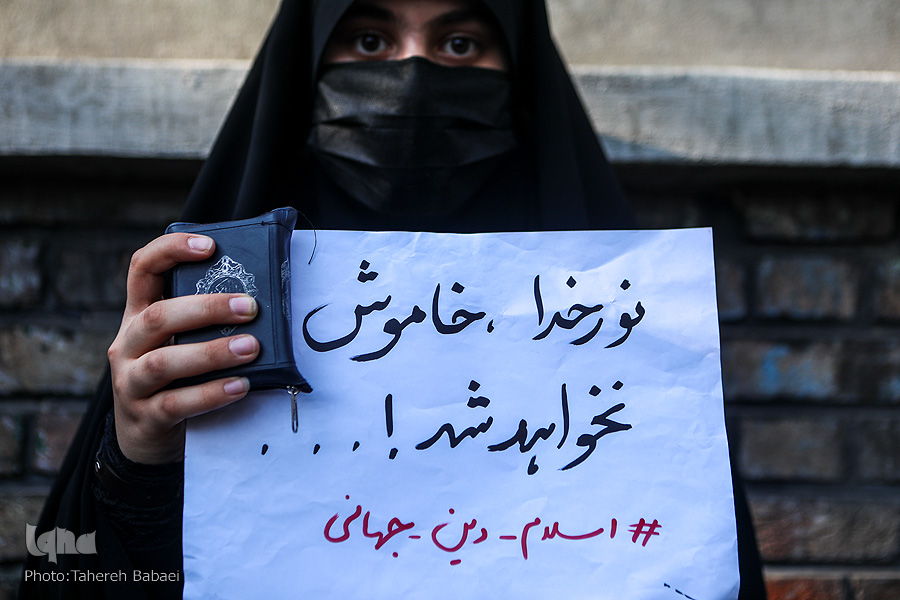 نور خدا ، خاموش
نخواهد شد ! . . . .
# اسلام - دین - جهانی
Iqna
Photo:Tahereh Babaei